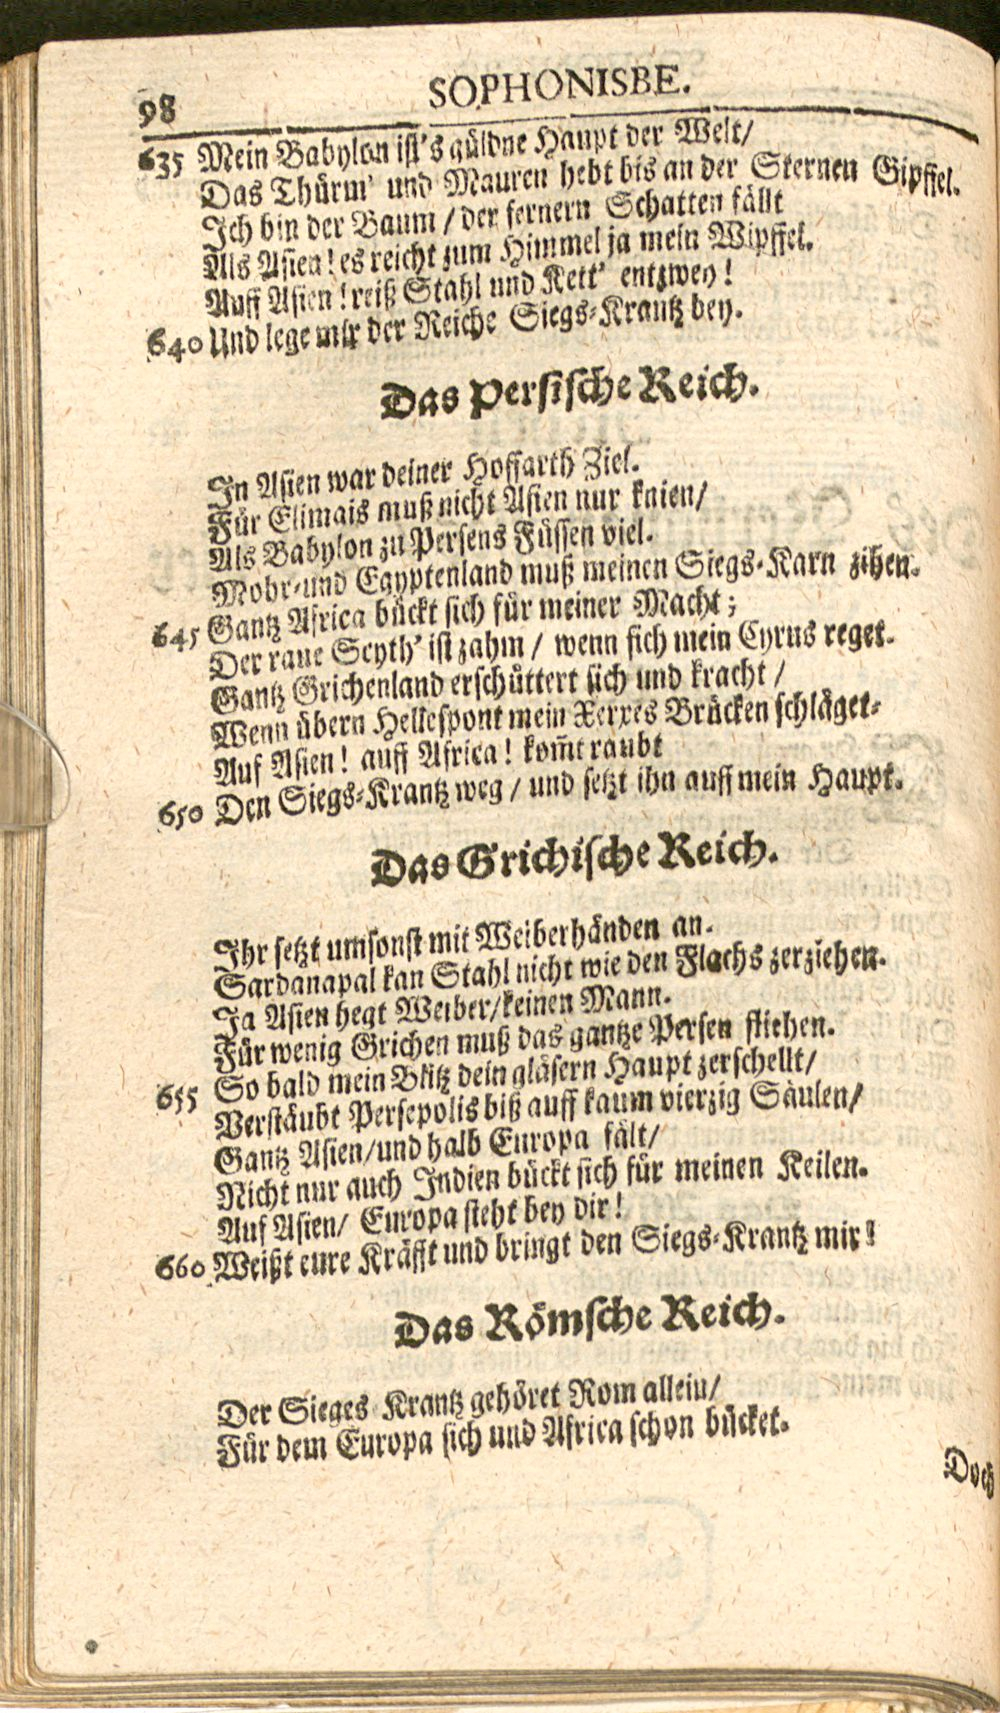 98 SOPHONISBE.
635 Mein Babylon ist's güldne Haupt der Welt/
Das Thürm' und Mauren hebt bis an der Sternen Gipffel.
Ich bin der Baum / der fernern Schatten fällt
Als Asien! es reicht zum Himmel ja mein Wipffel.
Auff Asien! reiß Stahl und Kett' entzwey!
640 Und lege mir der Reiche Siegs-Krantz bey.
Das Persische Reich.
In Asien war deiner Hoffarth Ziel.
Für Elimais muß nicht Asien nur knien/
Als Babylon zu Persens Füssen viel.
Mohr-und Egyptenland muß meinen Siegs-Karn zihen.
645 Gantz Africa bückt sich für meiner Macht;
Der raue Scyth' ist zahm / wenn sich mein Cyrus reget.
Gantz Grichenland erschüttert sich und kracht /
Wenn übern Hellespont mein Xerxes Brücken schläget-
Auf Asien! auff Africa! kom̃t raubt
650 Den Siegs-Krantz weg / und setzt ihn auff mein Haupt.
Das Grichische Reich.
Ihr setzt umsonst mit Weiberhänden an.
Sardanapal kan Stahl nicht wie den Flachs zerziehen.
Ja Asien hegt Weiber/keinen Mann.
Für wenig Grichen muß das gantze Persen fliehen.
655 So bald mein Blitz dein gläsern Haupt zerschellt/
Verstäubt Persepolis biß auff kaum vierzig Säulen/
Gantz Asien/und halb Europa fält/
Nicht nur auch Indien bückt sich für meinen Keilen.
Auf Asien/ Europa steht bey dir!
660 Weißt eure Kräfft und bringt den Siegs-Krantz mir!
Das Römsche Reich.
Der Sieges Krantz gehöret Rom allein/
Für dem Europa sich und Africa schon bücket.
Doch